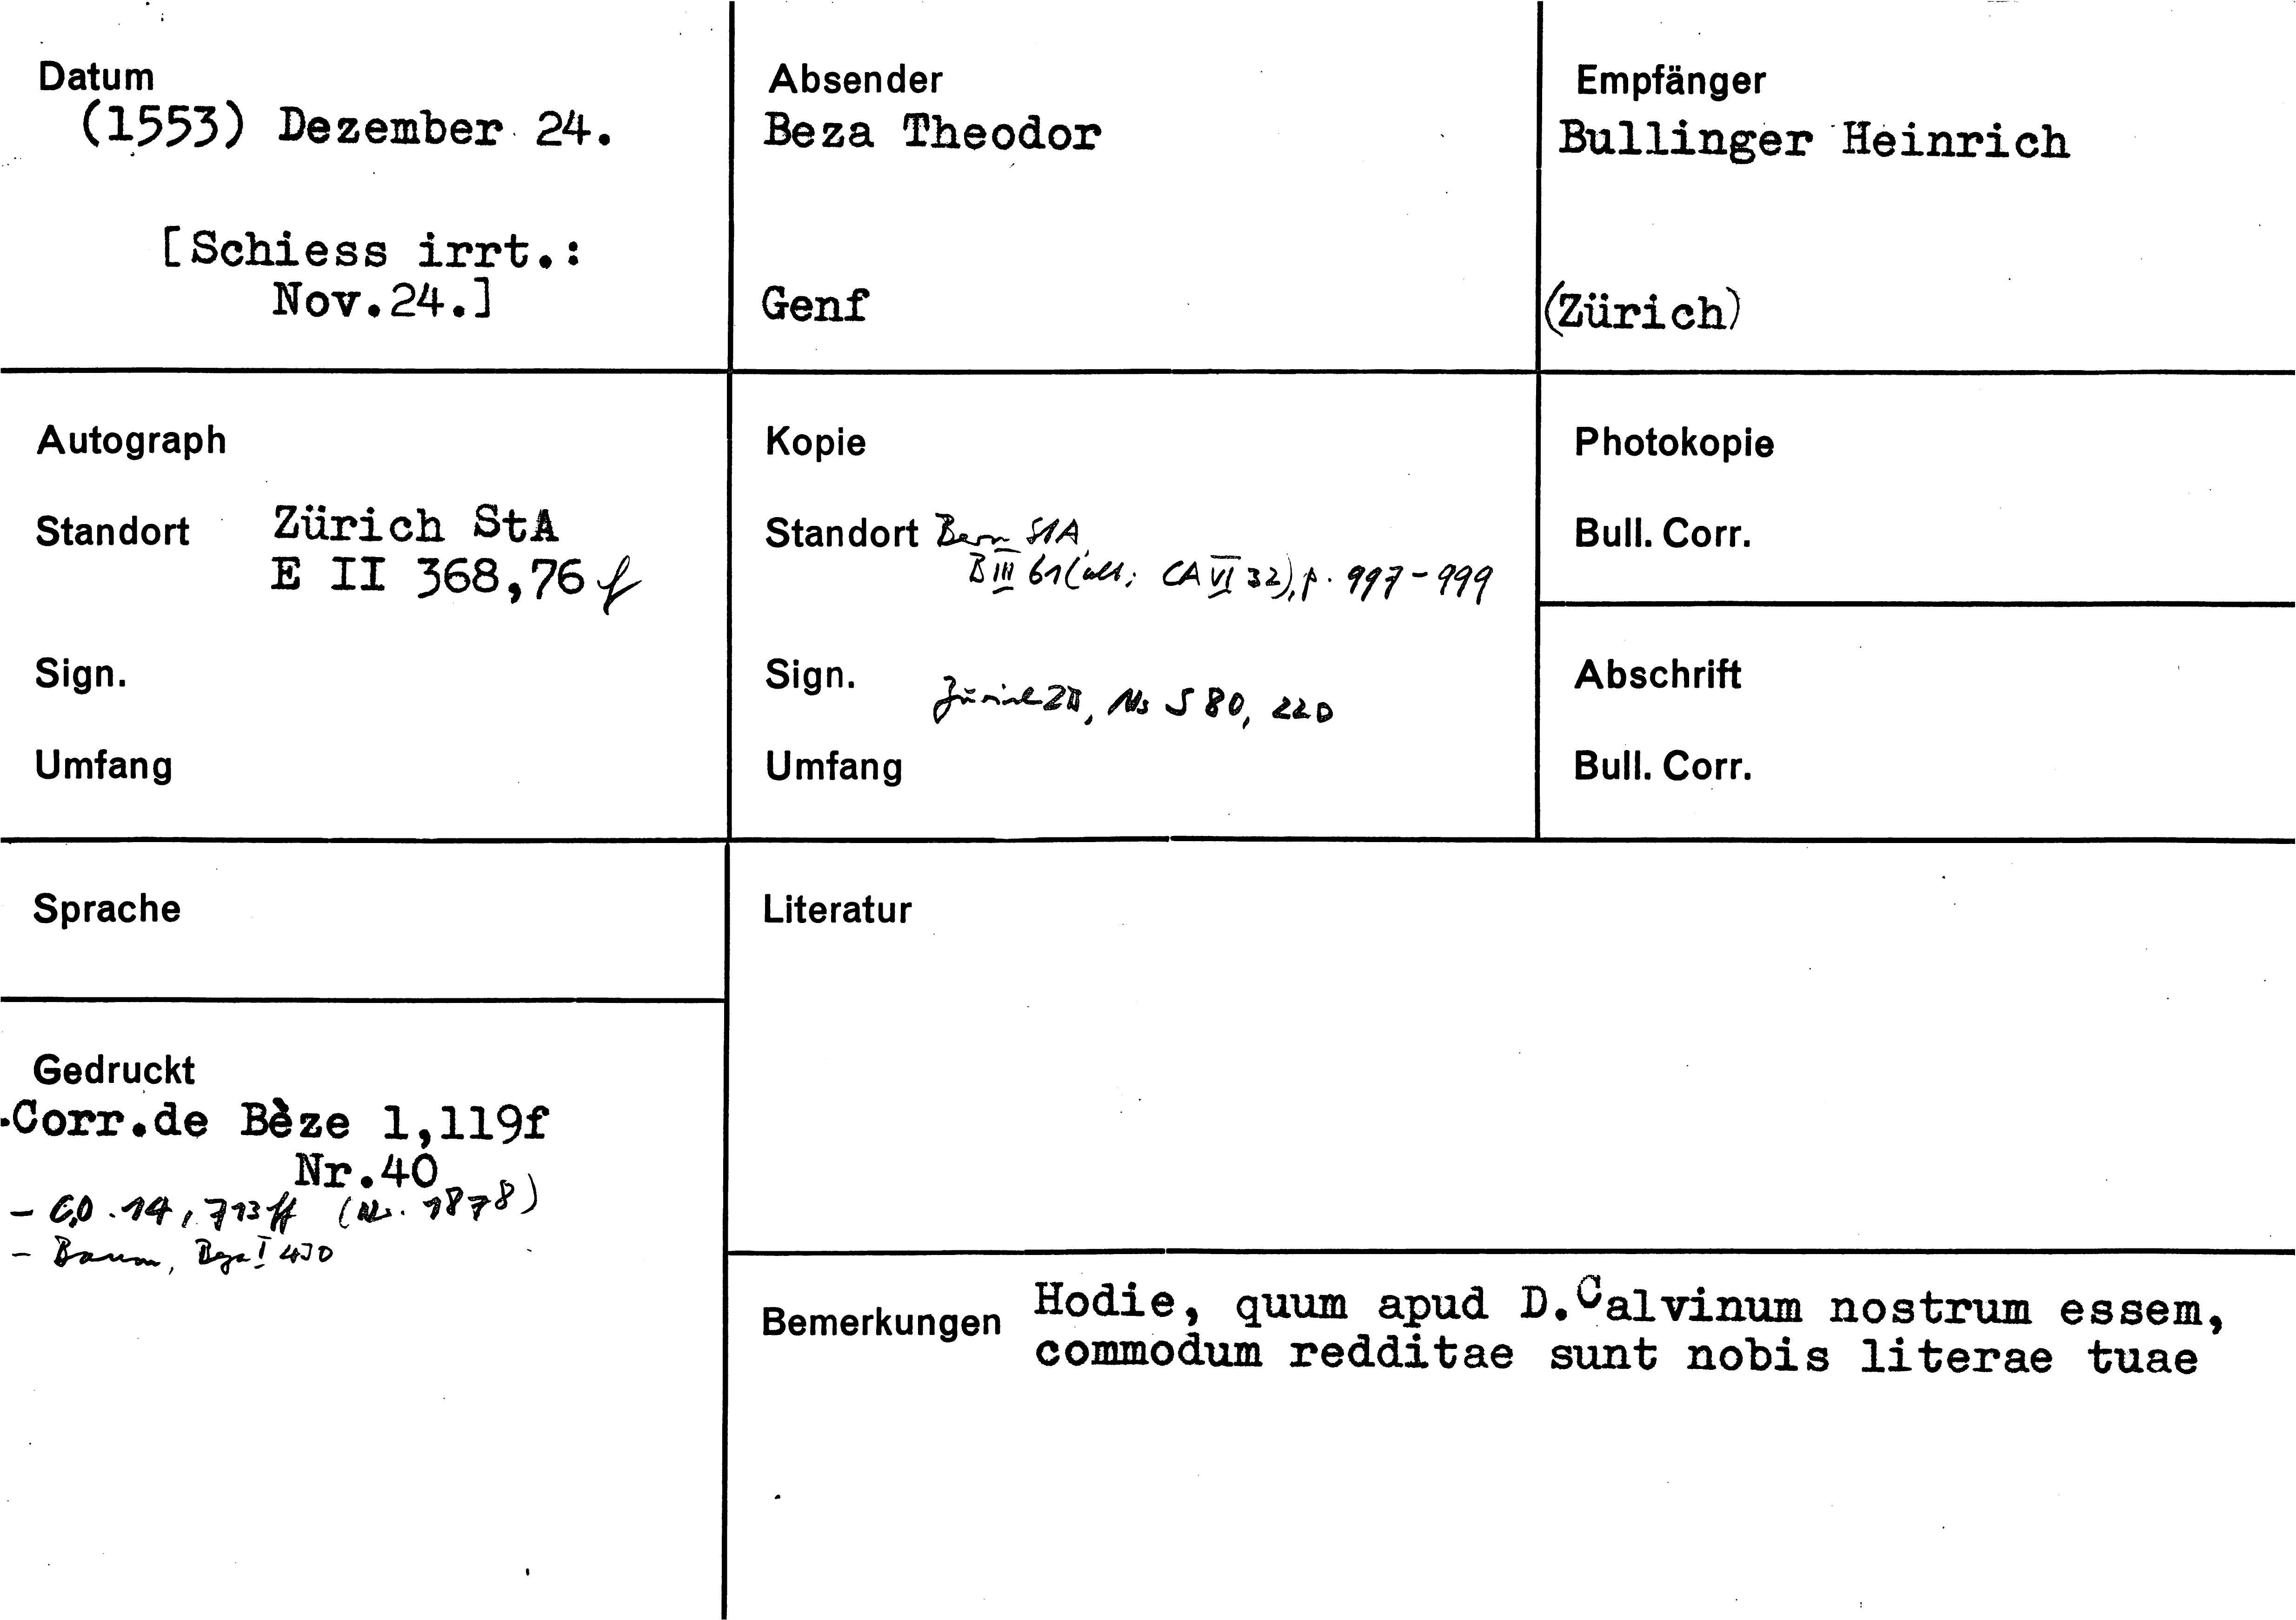 Datum
(1553) Dezember 24.
[Schiess irrt.:
Nov.24.]
Absender
Beza Theodor
Genf
Empfänger
Bullinger Heinrich
(Zürich)
Autograph
Standort Zürich StA
E II 368,76 f
Sign.
Umfang
Kopie
Standort Bern StA
B III 61 (alt: CA VI 32), p. 997-999
Sign. Zürich ZB, Ms S 80, 220
Umfang
Photokopie
Bull. Corr.
Abschrift
Bull. Corr.
Sprache
Literatur
Gedruckt
Corr.de Bèze 1,119f
Nr.40
- CO. 14, 713 ff (Nr. 1878)
- Baum, Beza I 430
Bemerkungen Hodie, quum apud D.Calvinum nostrum essem,
commodum redditae sunt nobis literae tuae